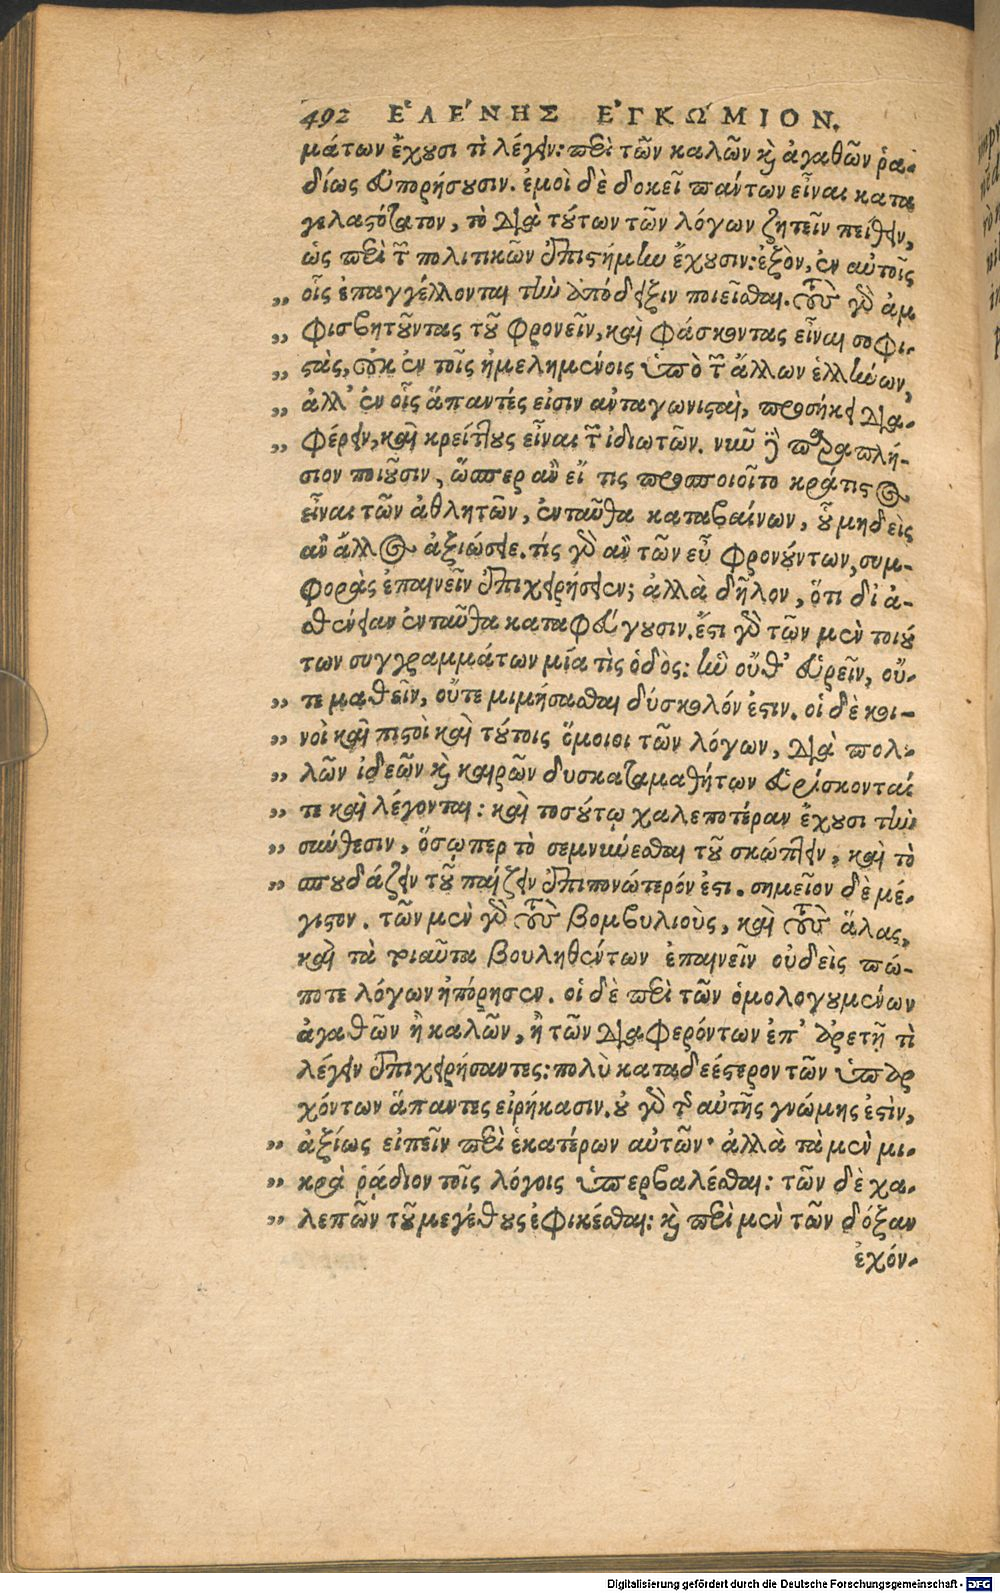 492 ΕʽΛΕ´ΝΗΣ ΕʼΓΚΩ´ΜΙΟΝ.
μάτων ἔχουσι τὶ λέγειν: περὶ τῶν καλῶν καὶ ἀγαθῶν ῥα-
δίως εὐπορήσουσιν. ἐμοὶ δὲ δοκεῖ πάντων εἶναι κατα
γελαστότατον, τὸ διὰ τούτων τῶν λόγων ζητεῖν πείθειν,
ὡς περὶ τῶν πολιτικῶν ἐπιστήμην ἔχουσιν: ἐξὸν, ἐν αὐτοῖς
„ οἷς ἐπαγγέλλονται τὴν ἀπόδειξιν ποιεῖσθαι. τοὺς γὰρ ἀμ
„ φισβητοῦντας τοῦ φρονεῖν, καὶ φάσκοντας εἶναι σοφι-
„ στὰς, οὐκ ἐν τοῖς ἠμελημένοις ὑπὸ τῶν ἄλλων ἑλλήνων,
„ ἀλλ’ ἐν οἷς ἅπαντές εἰσιν ἀνταγωνισταὶ, προσήκει δια-
„ φέρειν, καὶ κρείττους εἶναι τῶν ἰδιωτῶν. νῦν δὲ παραπλή-
σιον ποιοῦσιν, ὥσπερ ἂν εἴ τις προσποιοῖτο κράτιστος
εἶναι τῶν ἀθλητῶν, ἐνταῦθα καταβαίνων, οὗ μηδεὶς
ἂν ἄλλος ἀξιώσειε. τίς γὰρ ἂν τῶν εὖ φρονούντων, συμ-
φορὰς ἐπαινεῖν ἐπιχειρήσειεν; ἀλλὰ δῆλον, ὅτι δι ἀ-
σθένειαν ἐνταῦθα καταφεύγουσιν. ἔστι γὰρ τῶν μὲν τοιού
των συγγραμμάτων μία τὶς ὁδὸς: ἣν οὔθ’ εὑρεῖν, οὔ-
„ τε μαθεῖν, οὔτε μιμήσασθαι δύσκολόν ἐστιν. οἱ δὲ κοι-
„ νοὶ καὶ πιστοὶ καὶ τούτοις ὅμοιοι τῶν λόγων, διὰ πολ-
„ λῶν ἰδεῶν καὶ καιρῶν δυσκαταμαθήτων εὑρίσκονταί
„ τε καὶ λέγονται: καὶ τοσούτῳ χαλεποτέραν ἔχουσι τὴν
„ σύνθεσιν, ὅσῳπερ τὸ σεμνύνεσθαι τοῦ σκώπτειν, καὶ τὸ
„ σπουδάζειν τοῦ παίζειν ἐπιπονώτερόν ἐστι. σημεῖον δὲ μέ-
γιστον. τῶν μὲν γὰρ τοὺς βομβυλιοὺς, καὶ τοὺς ἅλας,
καὶ τὰ τοιαῦτα βουληθέντων ἐπαινεῖν οὐδεὶς πώ-
ποτε λόγων ἠπόρησεν. οἱ δὲ περὶ τῶν ὁμολογουμένων
ἀγαθῶν ἢ καλῶν, ἢ τῶν διαφερόντων ἐπ’ ἀρετῇ τὶ
λέγειν ἐπιχειρήσαντες: πολὺ καταδεέστερον τῶν ὑπαρ
χόντων ἅπαντες εἰρήκασιν. οὐ γὰρ τῆς αὐτῆς γνώμης ἐστὶν,
„ ἀξίως εἰπεῖν περὶ ἑκατέρων αὐτῶν· ἀλλὰ τὰ μὲν μι-
„ κρὰ ῥάδιον τοῖς λόγοις ὑπερβαλέσθαι: τῶν δὲ χα-
„ λεπῶν τοῦ μεγέθους ἐφικέσθαι: καὶ περὶ μὲν τῶν δόξαν
ἐχόν-
Digitalisierung gefördert durch die Deutsche Forschungsgemeinschaft - DFG